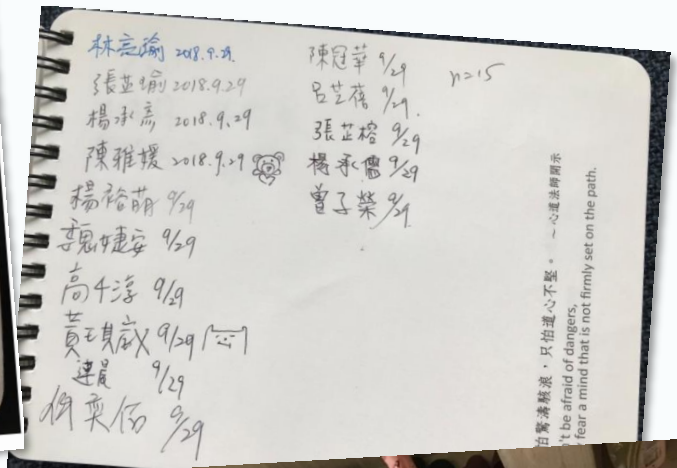 林言瑜 2018.9.29.
張芷瑜 2018.9.29
楊承彥 2018.9.29
陳雅媛 2018.9.29
楊裕萌 9/29
魏婕安 9/29
高千淳 9/29
黃琪崴 9/29
連晨 9/29
奕伯 9/29
陳冠華 9/29
呂芝蓓 9/29.
張芷榕 9/29
楊承儒 9/29
曾子榮 9/29
n=15
怕驚濤駭浪,只怕道心不堅。 ~心道法師開示
't be afraid of dangers,
fear a mind that is not firmly set on the path.